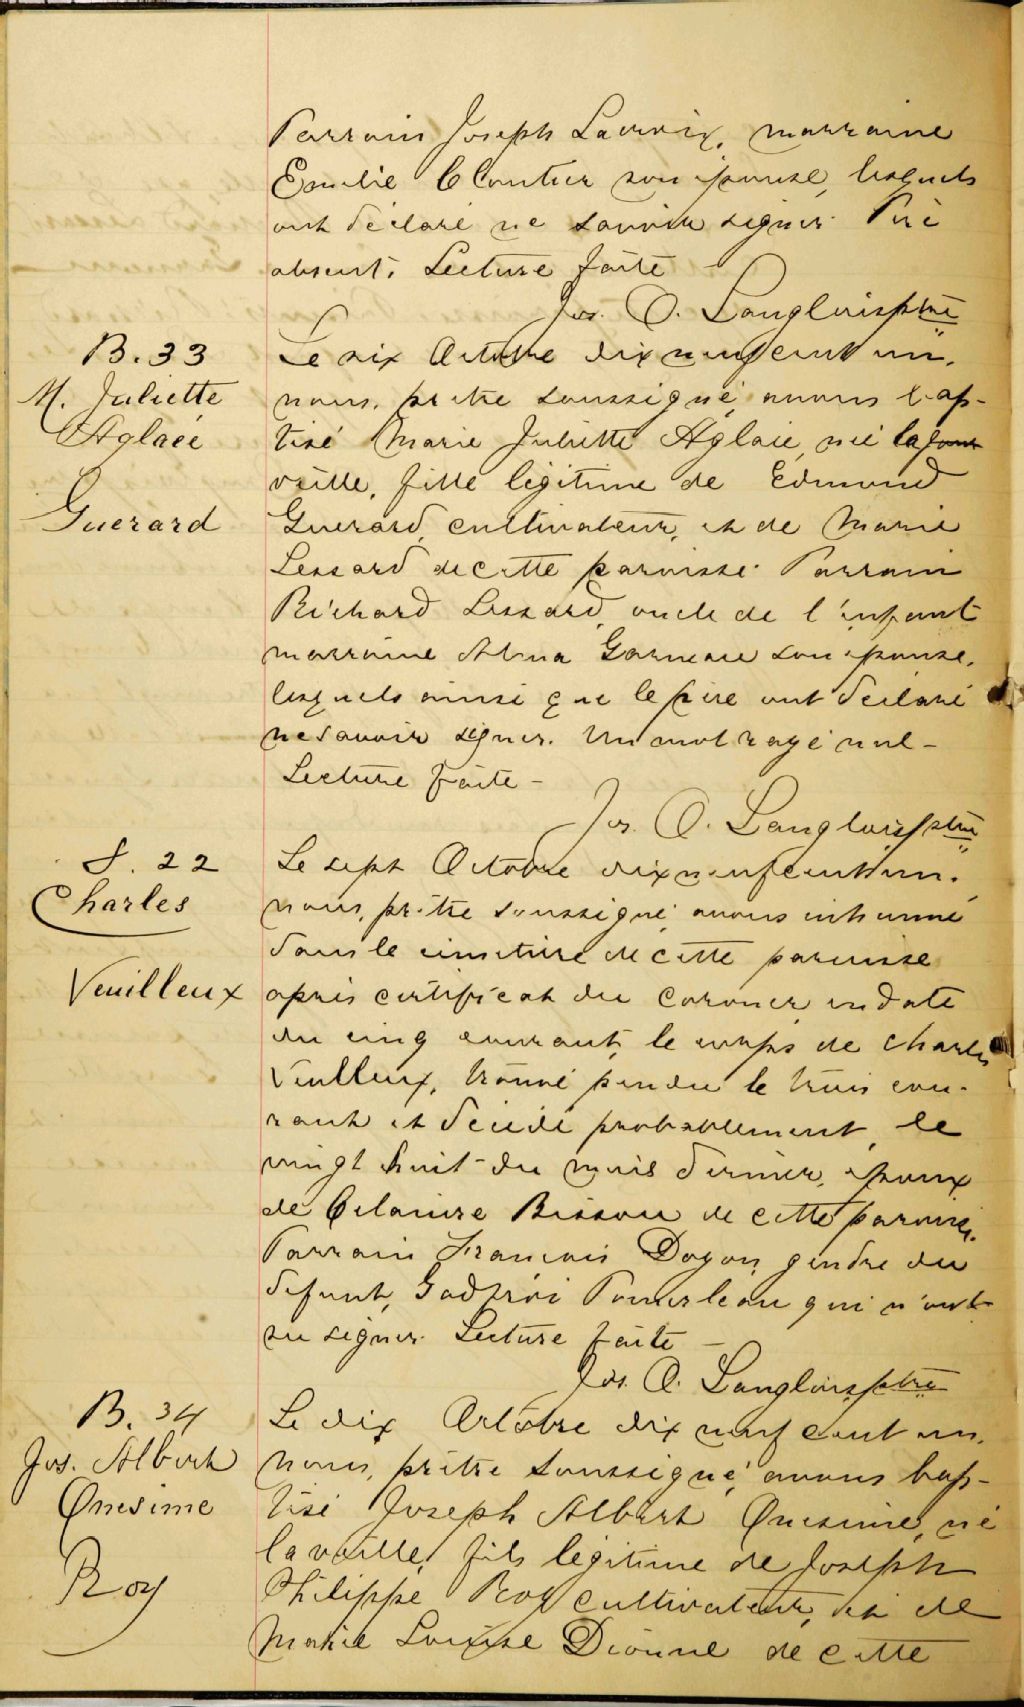 Parrain Joseph Lacroix, marraine
Emelie Cloutier son épouse, lesquels
ont déclaré ne savoir signer. Père
absent. Lecture faite –
Jos. O. Langlois ptre
B. 33
M. Juliette
Aglaée
Guerard
Le six Octobre dix neuf cent un,
nous, prêtre soussigné, avons bap-
tisé Marie Juliette Aglaée, née la
veille, fille légitime de Edmond
Guerard, cultivateur, et de Marie
Lessard de cette paroisse. Parrain
Richard Lessard, oncle de l'enfant
marraine Albina Garneau son épouse,
lesquels ainsi que le père ont déclaré
ne savoir signer. Un mot rayé nul –
Lecture faite –
Jos. O. Langlois ptre
S. 22
Charles
Veuilleux
Le sept Octobre dix neuf cent un,
nous, prêtre soussigné, avons inhumé
dans le cimetière de cette paroisse
après certificat du Coroner en date
du cinq courant, le corps de Charles
Veuilleux, trouvé pendu le trois cou-
rant et décédé probablement, le
vingt huit du mois dernier, époux
de Célanire Bisson de cette paroisse.
Parrain François Doyon, gendre du
défunt, Godfroi Pomerleau qui n'ont
su signer. Lecture faite –
Jos. O. Langlois ptre
B. 34
Jos. Albert
Onesime
Roy
Le dix Octobre dix neuf cent un,
nous, prêtre soussigné, avons bap-
tisé Joseph Albert Onesime, né
la veille, fils légitime de Joseph
Philippe Roy cultivateur, et de
Marie Louise Dionne de cette